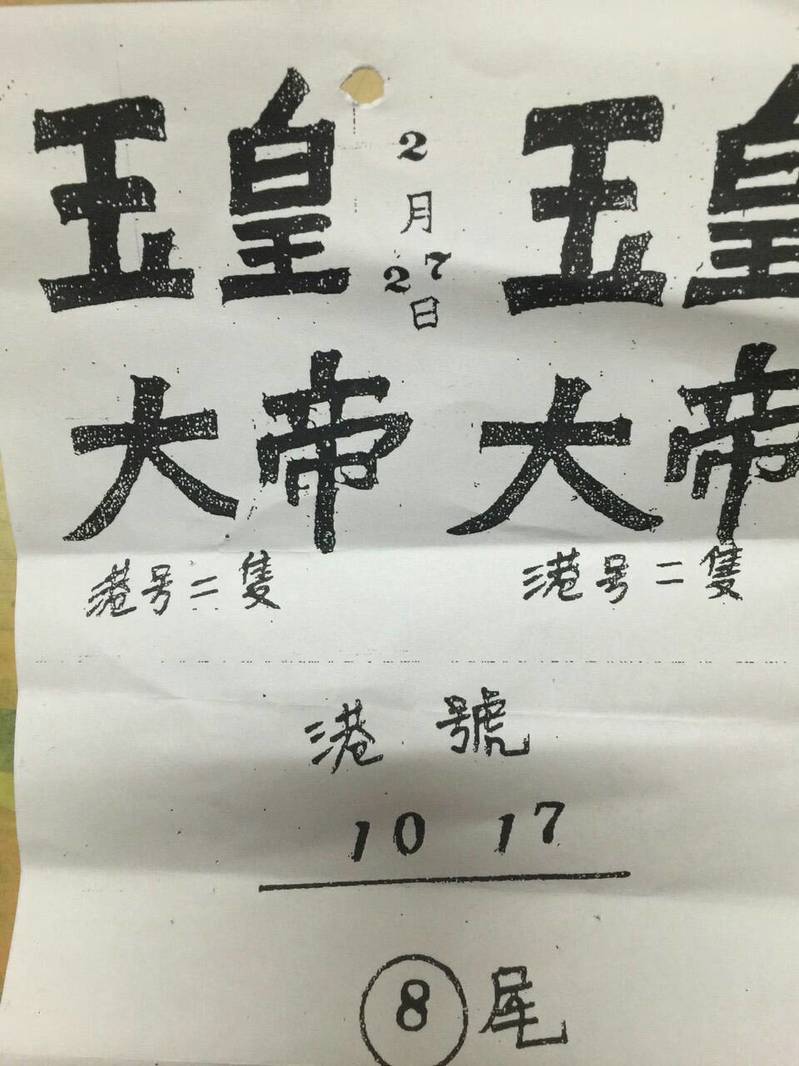 玉皇 2月27日 玉皇
大帝 大帝
港号二隻 港号二隻
港號
10 17
8 尾